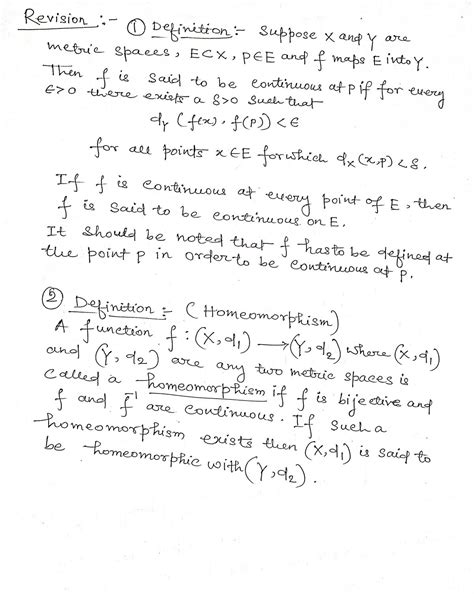 Revision :- ① Definition :- Suppose X and Y are
metric spaces, E⊂X, p∈E and f maps E into Y.
Then f is said to be continuous at p if for every
ϵ>0 there exists a δ>0 such that
d_Y (f(x), f(p)) < ϵ
for all points x∈E for which d_X(x,p) < δ.
If f is continuous at every point of E, then
f is said to be continuous on E.
It should be noted that f has to be defined at
the point p in order to be continuous at p.
② Definition :- (Homeomorphism)
A function f : (X,d₁) ⟶ (Y,d₂) where (X,d₁)
and (Y,d₂) are any two metric spaces is
called a homeomorphism if f is bijective and
f and f⁻¹ are continuous. If such a
homeomorphism exists then (X,d₁) is said to
be homeomorphic with (Y,d₂).